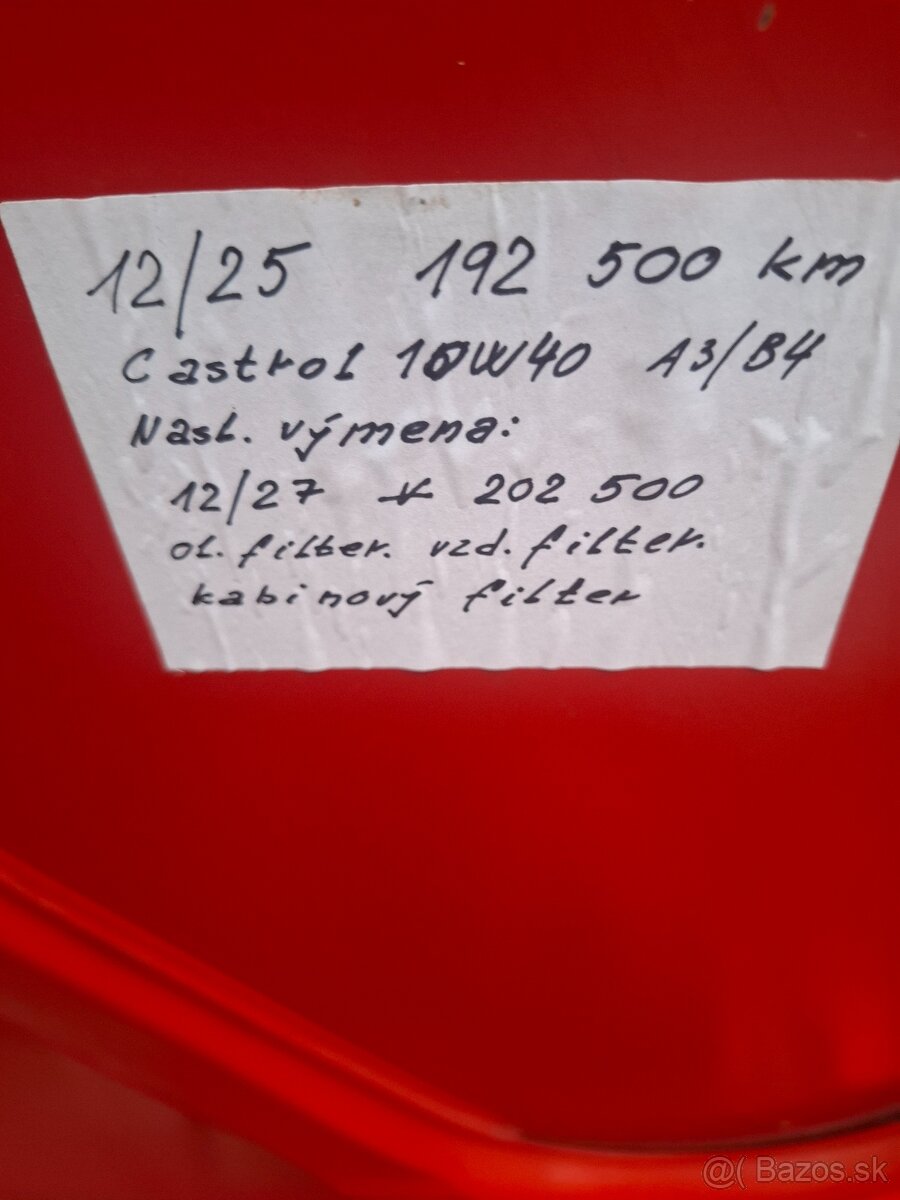 12/25 192 500 km
Castrol 10W40 A3/B4
Nasl. výmena:
12/27 v 202 500
ol. filter. vzd. filter.
kabinový filter
@( Bazos.sk